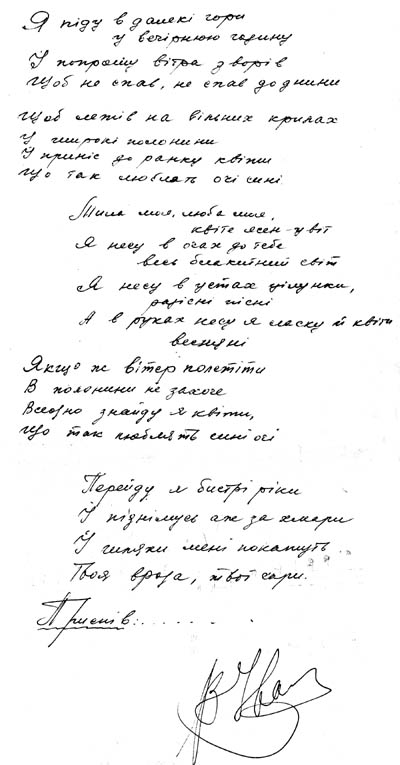 Я піду в далекі гори
у вечірнюю годину
У попрошу вітра з ворів
Щоб не спав, не спав до днини
Щоб летів на вільних крилах
У широкі полонини
У приніс до ранку квіти
Що так люблять очі сині.
Мила моя, люба моя,
квіте ясен-цвіт
Я несу в очах до тебе
весь блакитний світ
Я несу в устах цілунки,
радісні пісні
А в руках несу я ласку й квіти
весняні
Якщо ж вітер полетіти
В полонини не захоче
Всеодно знайду я квіти,
Що так люблять сині очі
Перейду я бистрі ріки
У піднімусь аж за хмари
У шляхи мені покажуть
Твоя врода, твої чари.
Приспів: . . . . . . .